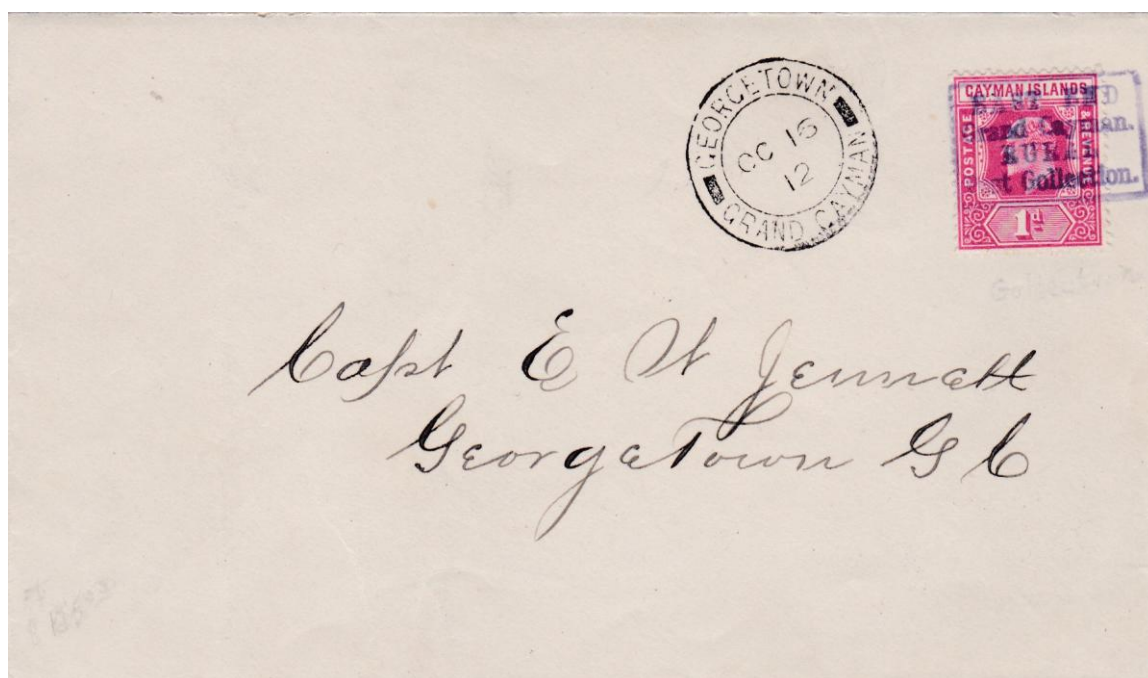 GEORGETOWN
OC 16
12
GRAND CAYMAN
CAYMAN ISLANDS
POSTAGE & REVENUE
EAST END
Grand Cayman.
RURAL
Collection.
1d
Capt E W Jennett
GeorgeTown G C